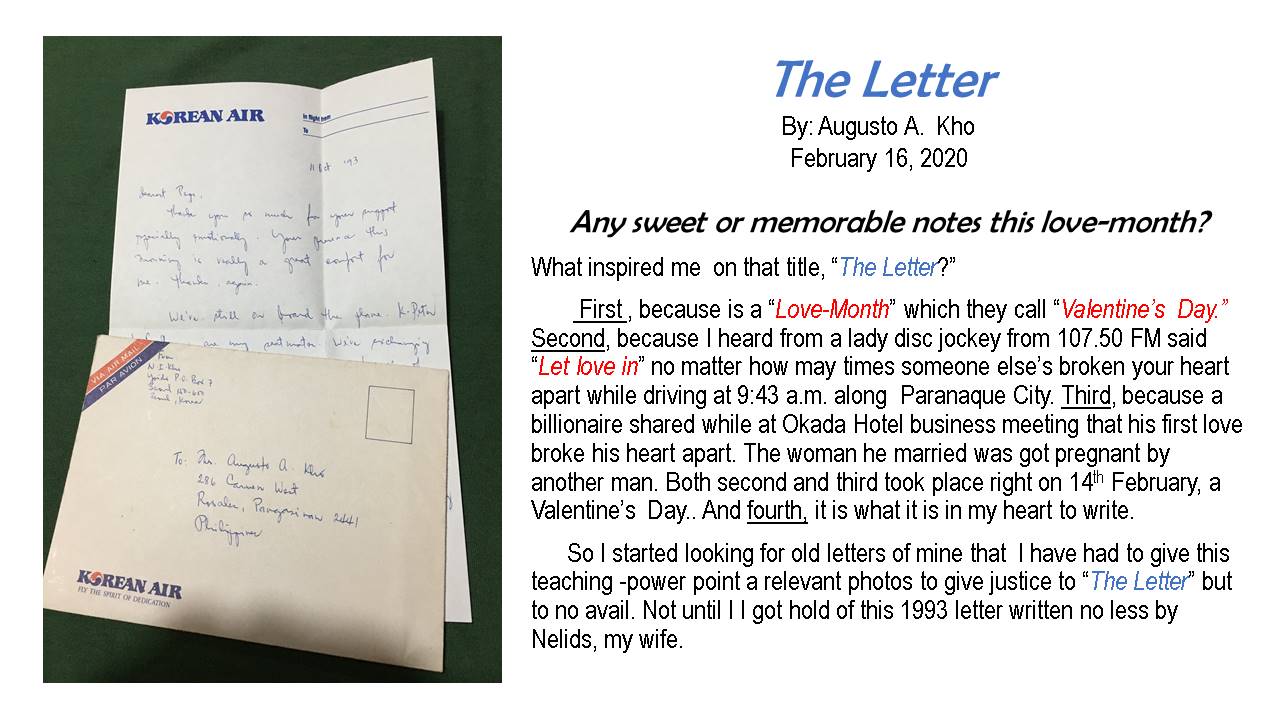 KOREAN AIR
In flight from
To
11 Oct '93
Dearest Papa,
Thank you so much for your support
especially emotionally. Your presence this
morning is really a great comfort for
me. Thanks again.
We're still on board the plane. K. Peter
are my seatmates. We're exchanging
VIA AIR MAIL
PAR AVION
From
N. I. Kho
Yoido P.O. Box 7
Seoul 150-600
Seoul, Korea
To: Mr. Augusto A. Kho
286 Carmen West
Rosales, Pangasinan 2441
Philippines
KOREAN AIR
FLY THE SPIRIT OF DEDICATION
The Letter
By: Augusto A.  Kho
February 16, 2020
Any sweet or memorable notes this love-month?
What inspired me  on that title, “The Letter?”
First , because is a “Love-Month” which they call “Valentine’s  Day.”
Second, because I heard from a lady disc jockey from 107.50 FM said
“Let love in” no matter how may times someone else’s broken your heart
apart while driving at 9:43 a.m. along  Paranaque City. Third, because a
billionaire shared while at Okada Hotel business meeting that his first love
broke his heart apart. The woman he married was got pregnant by
another man. Both second and third took place right on 14th February, a
Valentine’s  Day.. And fourth, it is what it is in my heart to write.
So I started looking for old letters of mine that  I have had to give this
teaching -power point a relevant photos to give justice to “The Letter” but
to no avail. Not until I I got hold of this 1993 letter written no less by
Nelids, my wife.